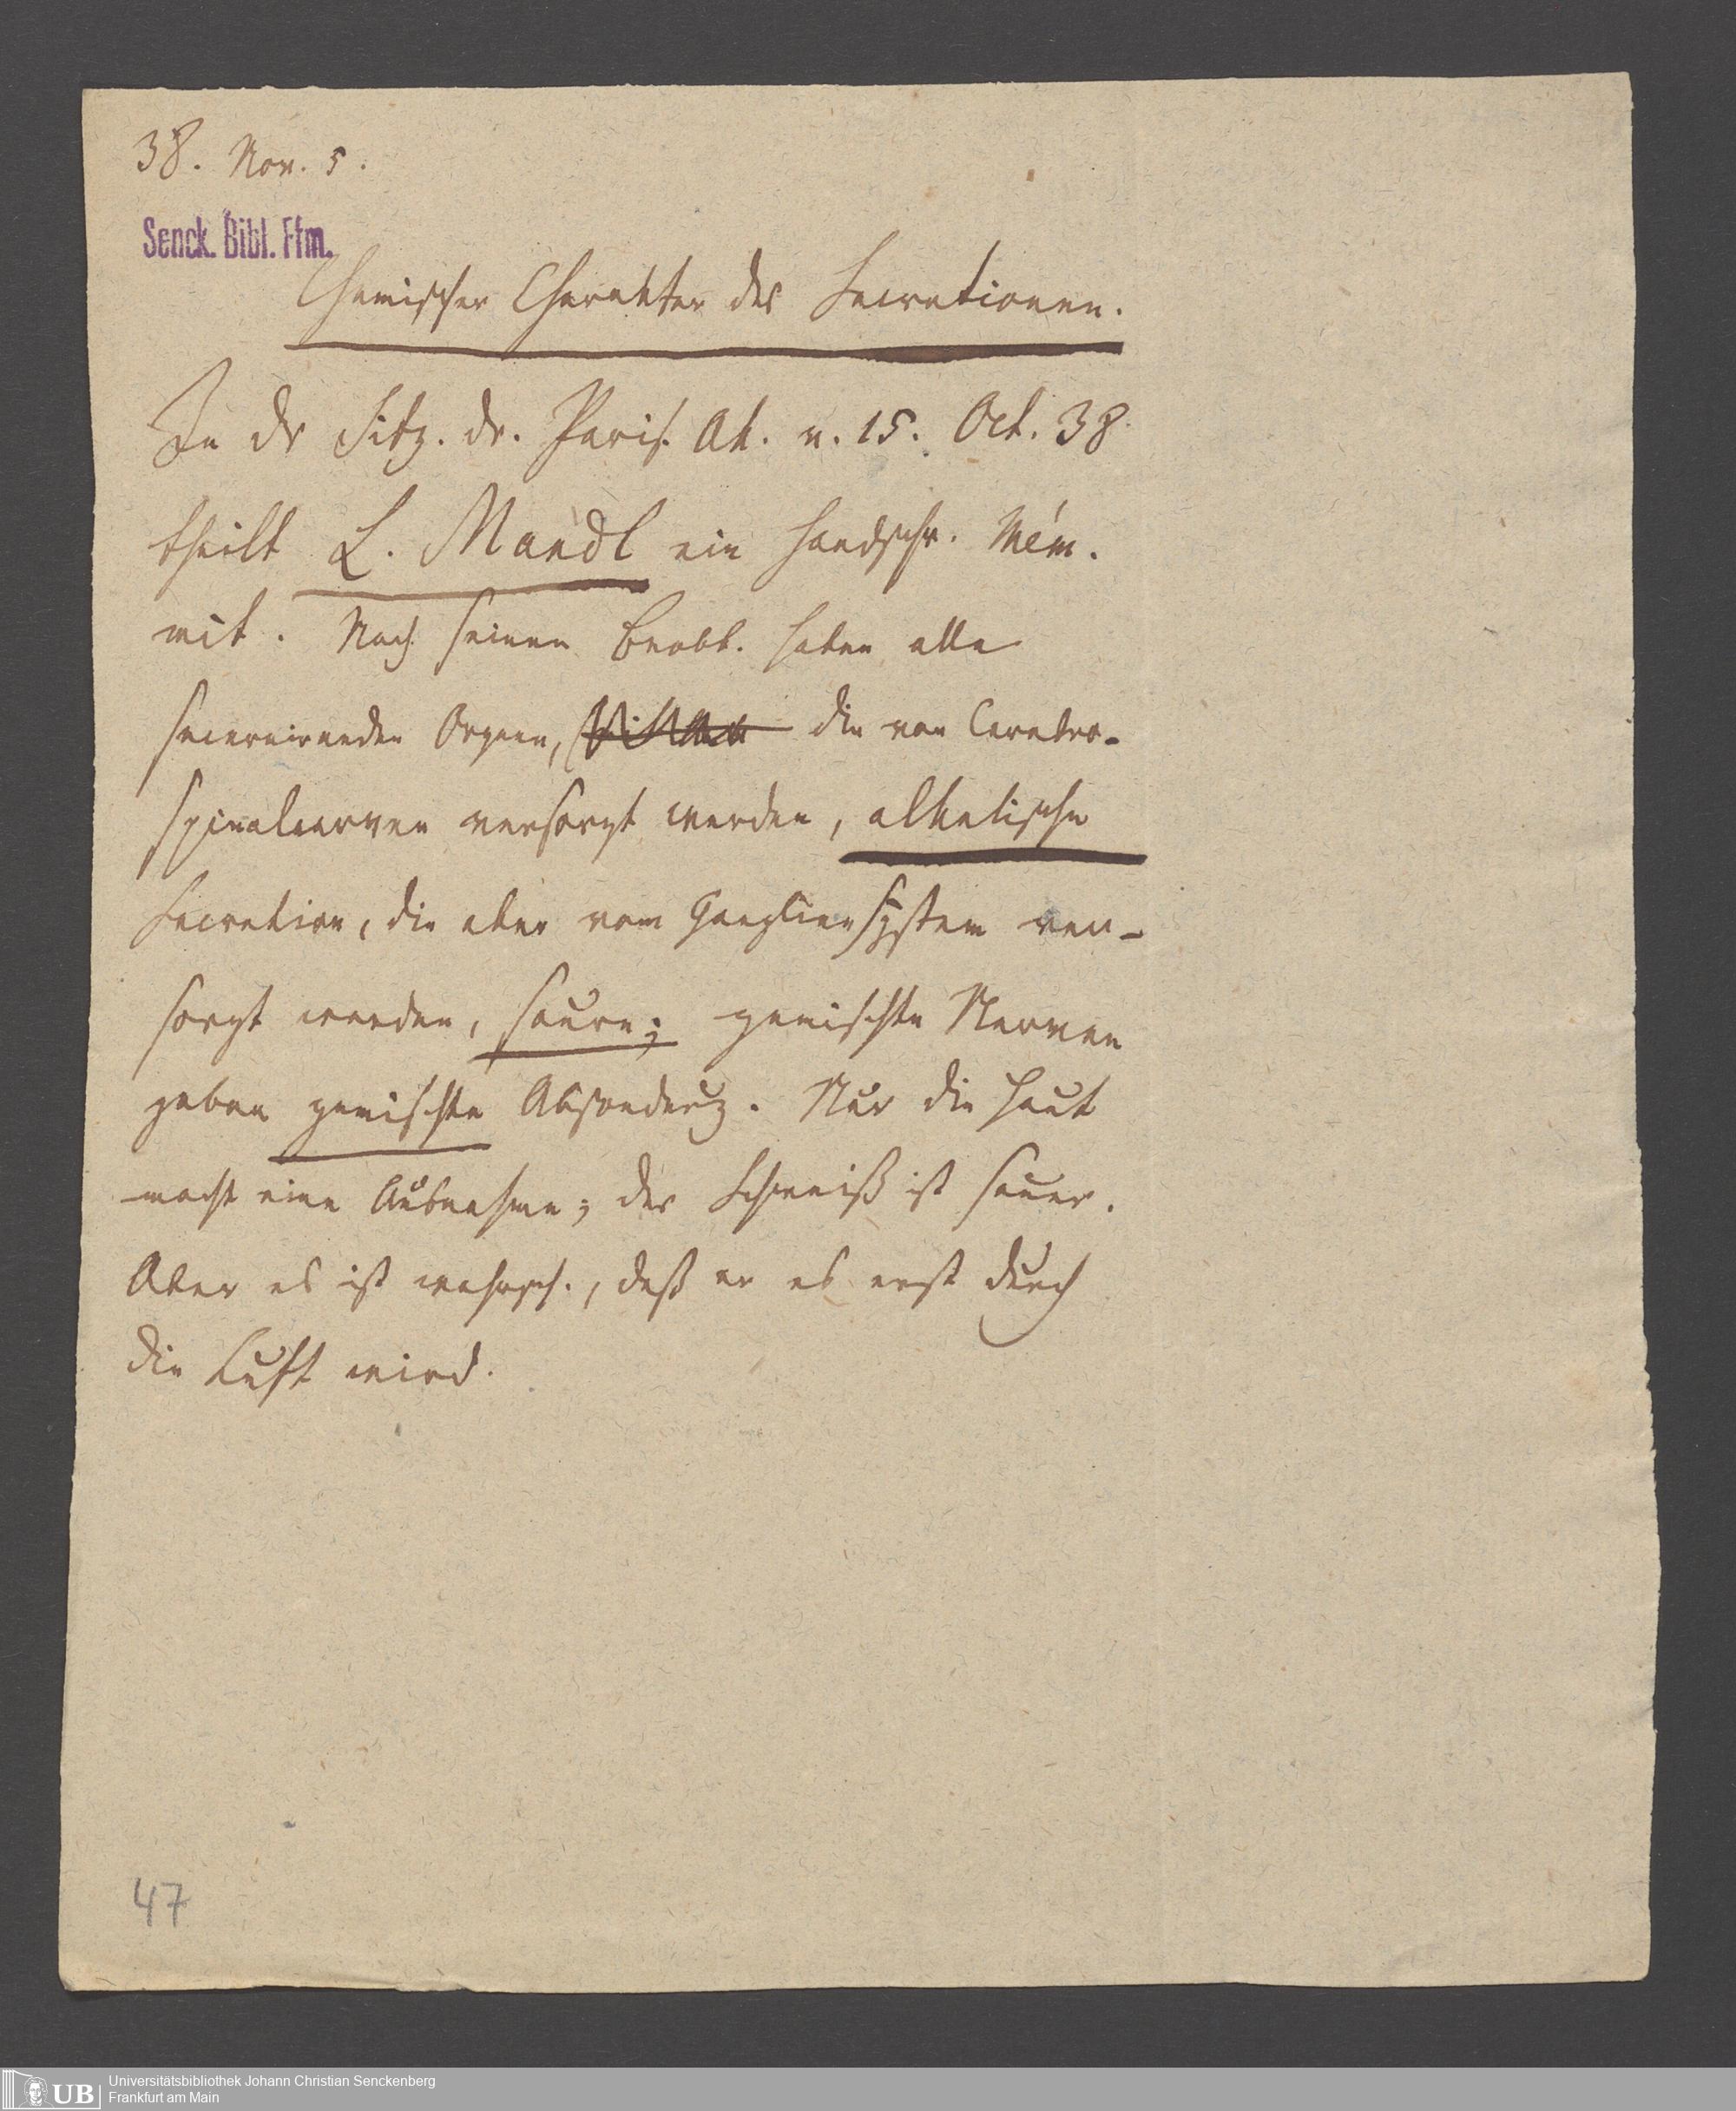 38. Nov. 5.
Senck. Bibl. Ffm.
Chemischer Charakter der Secretionen.
In dr Sitz. dr. Paris. Ak. v. 15. Oct. 38
theilt L. Mandl ein handschr. Mém.
mit. Nach seinen Beobb. haben alle
secernirenden Organe, die von Cerebro-
spinalnerven versorgt werden, alkalische
Secretion, die aber vom Gangliensystem ver-
sorgt werden, saure; gemischte Nerven
geben gemischte Absonderung. Nur die Haut
macht eine Ausnahme; der Schweiß ist sauer.
Aber es ist wahrsch., daß er es erst durch
die Luft wird.
47
UB
Universitätsbibliothek Johann Christian Senckenberg
Frankfurt am Main